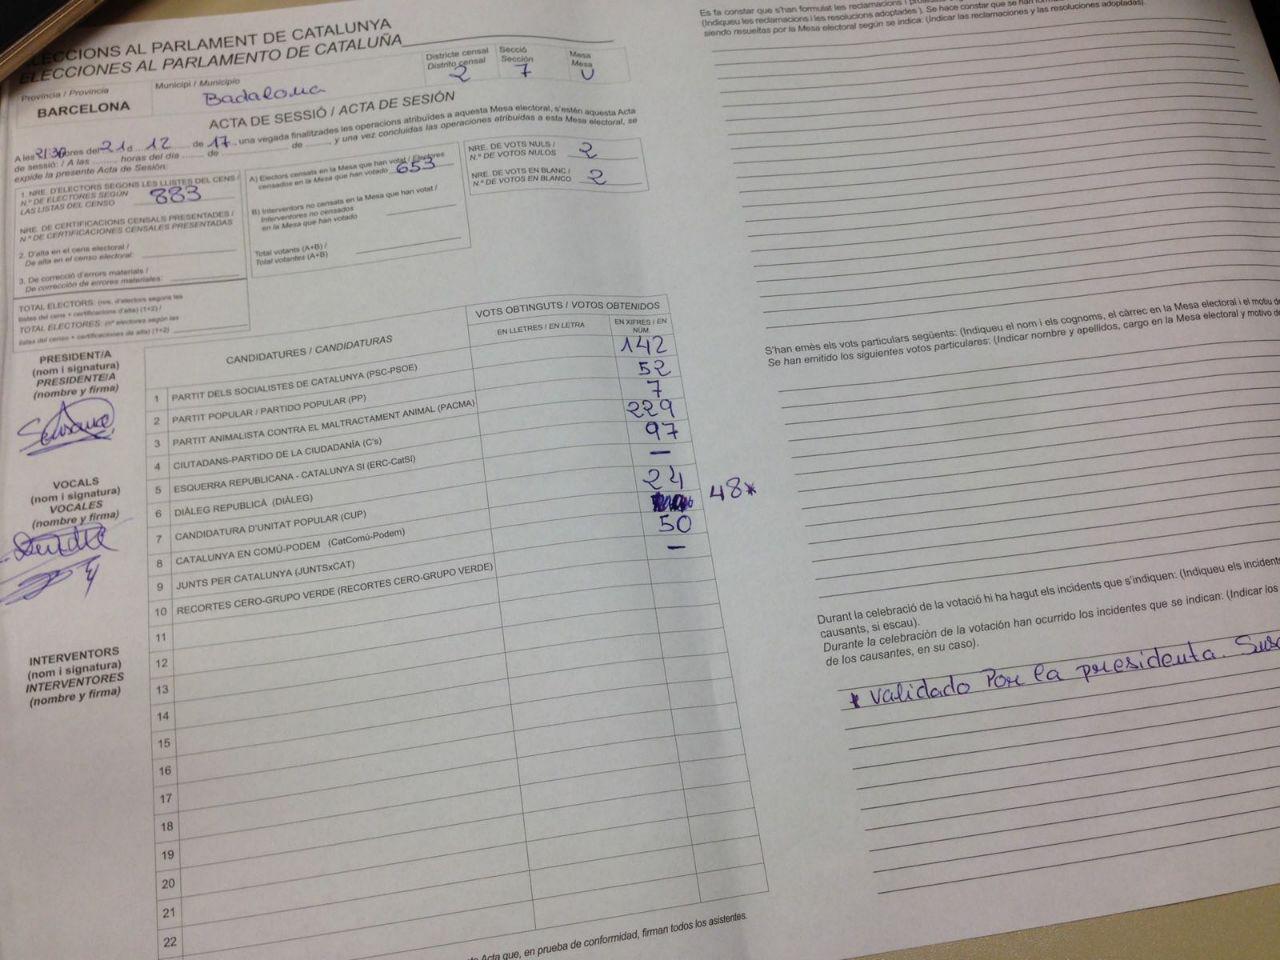 ELECCIONS AL PARLAMENT DE CATALUNYA
ELECCIONES AL PARLAMENTO DE CATALUÑA
Província / Provincia
BARCELONA
Municipi / Municipio
Badalona
Districte censal
Distrito censal
2
Secció
Sección
7
Mesa
Mesa
U
ACTA DE SESSIÓ / ACTA DE SESIÓN
A les 21:30 hores del 21 d 12 de 17, una vegada finalitzades les operacions atribuïdes a aquesta Mesa electoral, s'estén aquesta Acta
de sessió: / A las ........ horas del día ........ de ........ de ........ y una vez concluidas las operaciones atribuidas a esta Mesa electoral, se
expide la presente Acta de Sesión:
1. NRE. D'ELECTORS SEGONS LES LLISTES DEL CENS /
N.º DE ELECTORES SEGÚN
LAS LISTAS DEL CENSO
883
NRE. DE CERTIFICACIONS CENSALS PRESENTADES /
N.º DE CERTIFICACIONES CENSALES PRESENTADAS
2. D'alta en el cens electoral /
De alta en el censo electoral:
3. De correcció d'errors materials /
De corrección de errores materiales:
TOTAL ELECTORS: (nre. d'electors segons les
llistes del cens + certificacions d'alta) (1+2) /
TOTAL ELECTORES: (nº electores según las
listas del censo + certificaciones de alta) (1+2)
A) Electors censats en la Mesa que han votat / Electores
censados en la Mesa que han votado
653
B) Interventors no censats en la Mesa que han votat /
Interventores no censados
en la Mesa que han votado
Total votants (A+B) /
Total votantes (A+B)
NRE. DE VOTS NULS /
N.º DE VOTOS NULOS
2
NRE. DE VOTS EN BLANC /
N.º DE VOTOS EN BLANCO
2
PRESIDENT/A
(nom i signatura)
PRESIDENTE/A
(nombre y firma)
VOCALS
(nom i signatura)
VOCALES
(nombre y firma)
INTERVENTORS
(nom i signatura)
INTERVENTORES
(nombre y firma)
CANDIDATURES / CANDIDATURAS
VOTS OBTINGUTS / VOTOS OBTENIDOS
EN LLETRES / EN LETRA
EN XIFRES / EN NÚM.
1 PARTIT DELS SOCIALISTES DE CATALUNYA (PSC-PSOE) 142
2 PARTIT POPULAR / PARTIDO POPULAR (PP) 52
3 PARTIT ANIMALISTA CONTRA EL MALTRACTAMENT ANIMAL (PACMA) 7
4 CIUTADANS-PARTIDO DE LA CIUDADANÍA (C's) 229
5 ESQUERRA REPUBLICANA - CATALUNYA SÍ (ERC-CatSí) 97
6 DIÀLEG REPUBLICÀ (DIÀLEG) —
7 CANDIDATURA D'UNITAT POPULAR (CUP) 24
8 CATALUNYA EN COMÚ-PODEM (CatComú-Podem) 48*
9 JUNTS PER CATALUNYA (JUNTSxCAT) 50
10 RECORTES CERO-GRUPO VERDE (RECORTES CERO-GRUPO VERDE) —
11
12
13
14
15
16
17
18
19
20
21
22
Acta que, en prueba de conformidad, firman todos los asistentes.
Es fa constar que s'han formulat les reclamacions i
(Indiqueu les reclamacions i les resolucions adoptades). Se hace constar que se han
siendo resueltas por la Mesa electoral según se indica: (Indicar las reclamaciones y las resoluciones adoptadas).
S'han emès els vots particulars següents: (Indiqueu el nom i els cognoms, el càrrec en la Mesa electoral i el motiu
Se han emitido los siguientes votos particulares: (Indicar nombre y apellidos, cargo en la Mesa electoral y motivo
Durant la celebració de la votació hi ha hagut els incidents que s'indiquen: (Indiqueu els incidents
causants, si escau).
Durante la celebración de la votación han ocurrido los incidentes que se indican: (Indicar los
de los causantes, en su caso).
* validado por la presidenta.